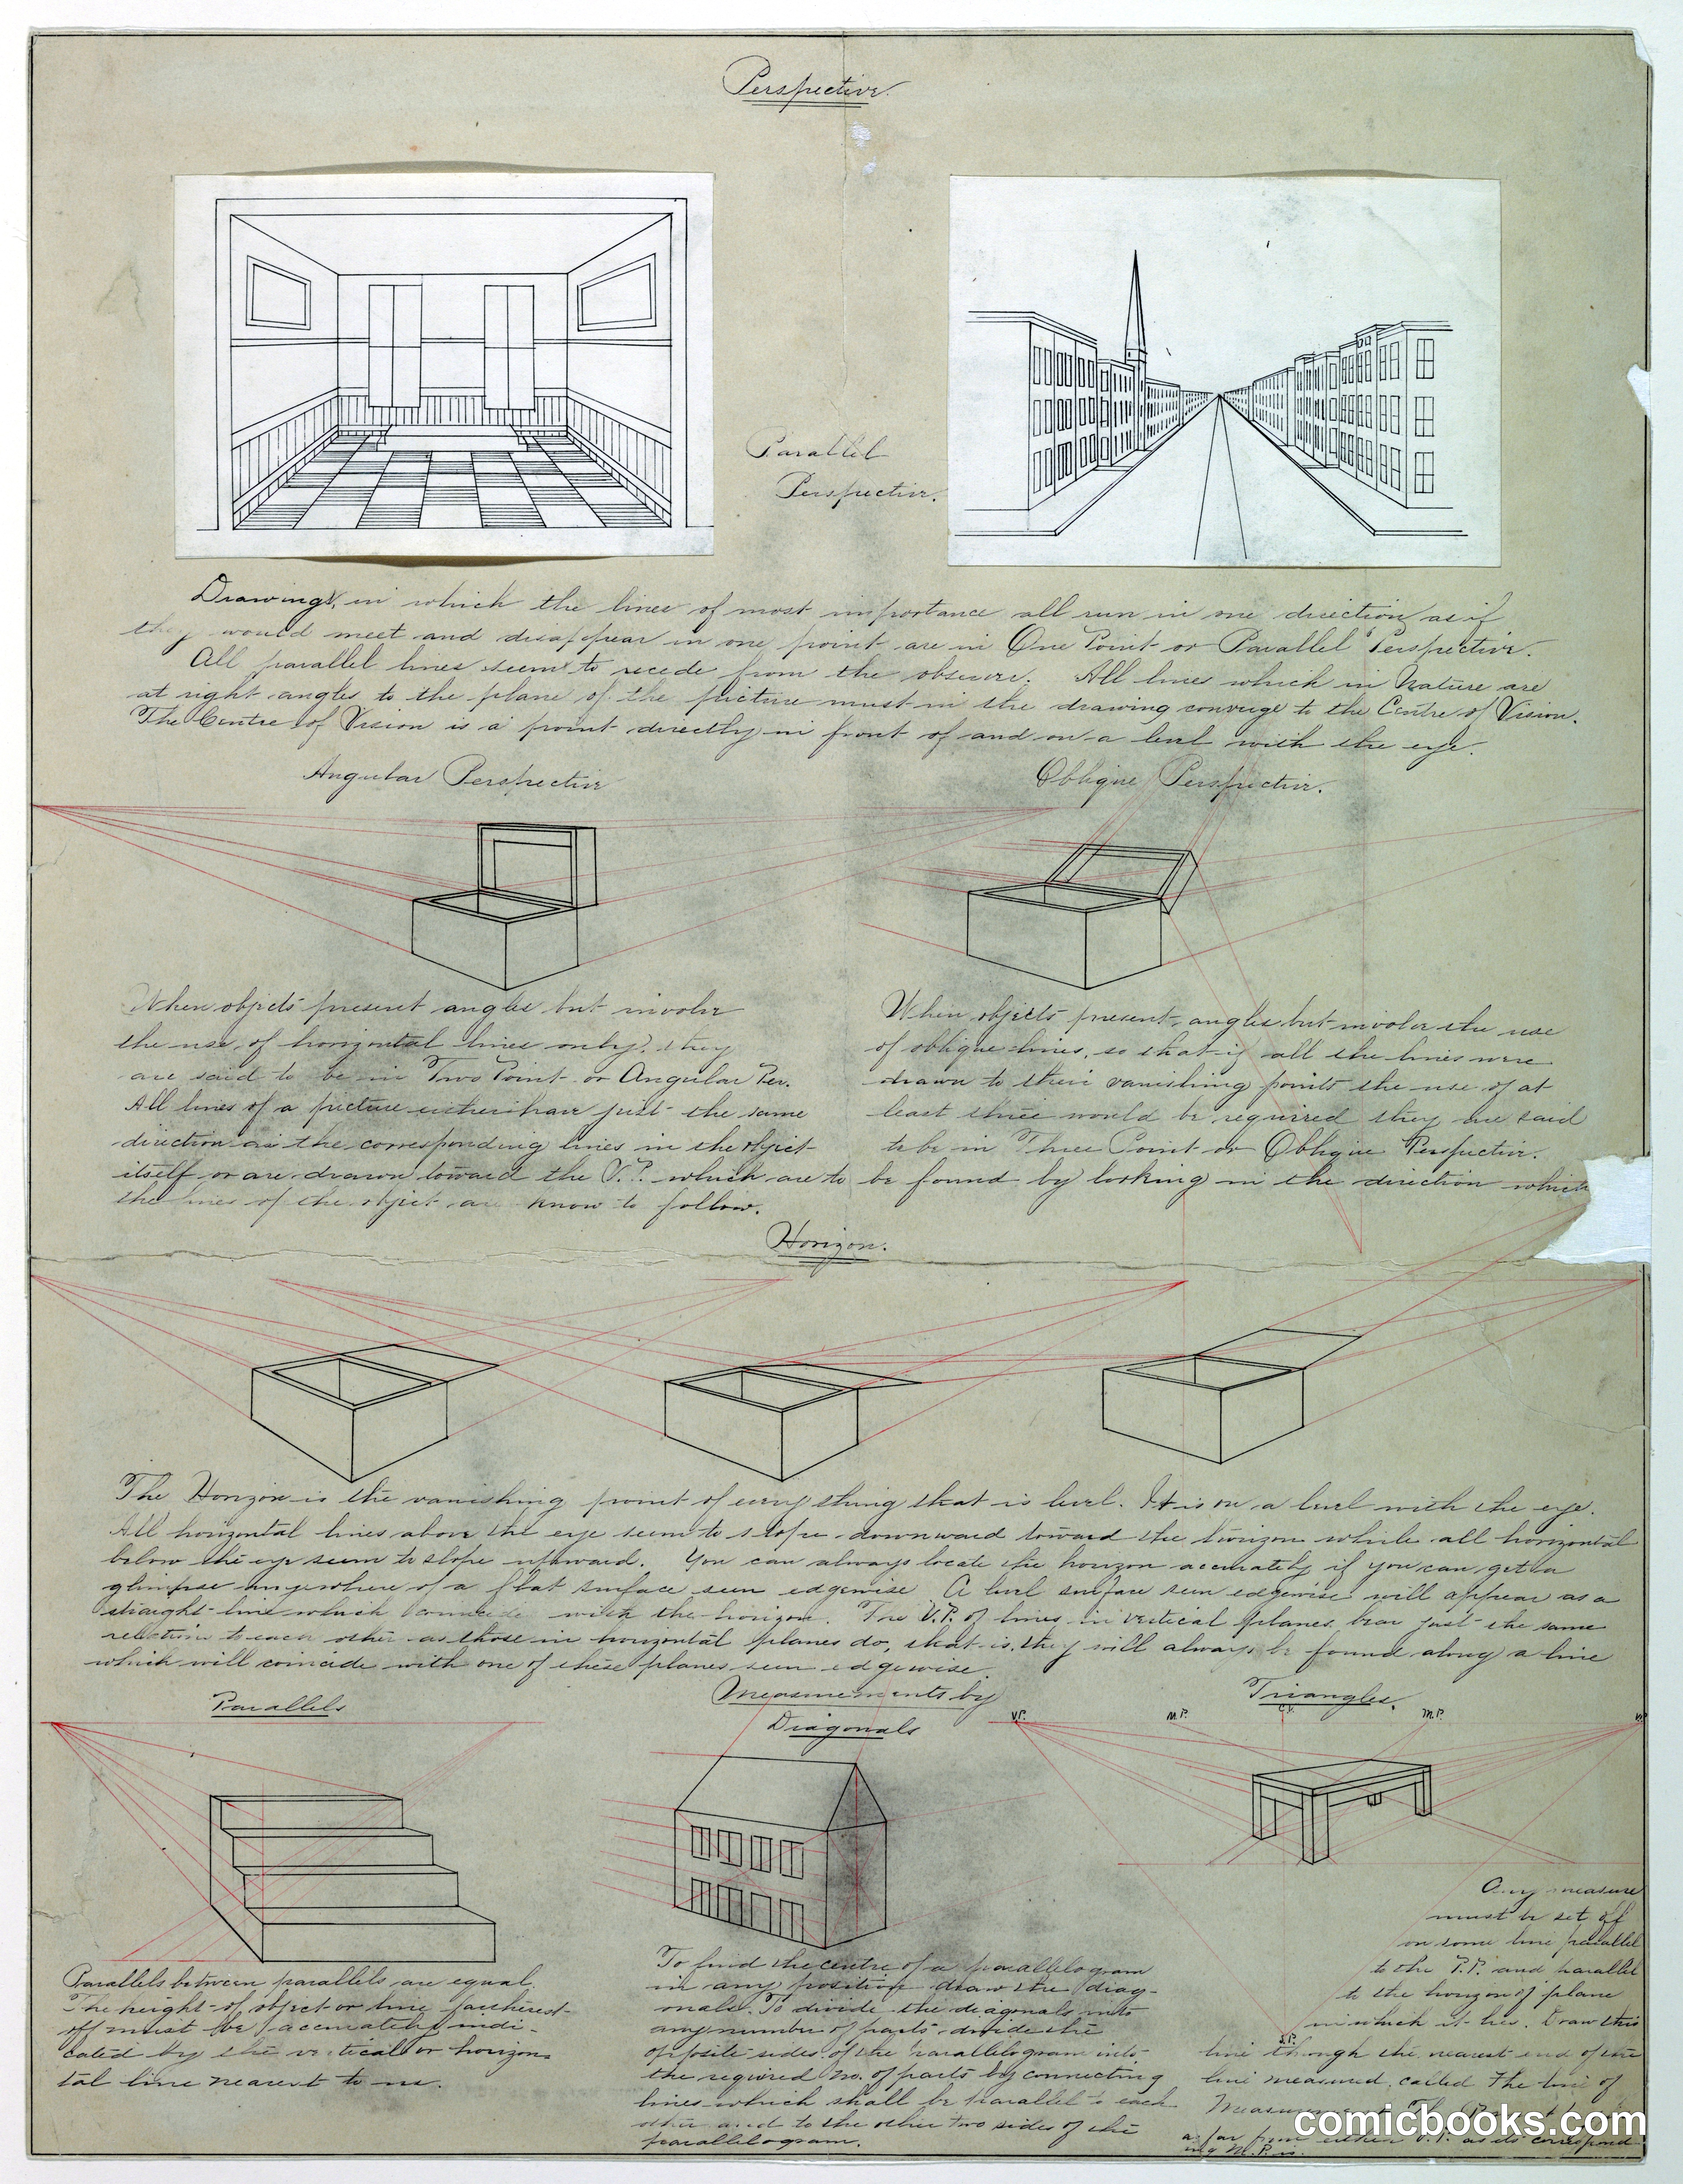 Perspective.
Parallel
Perspective.
Drawings, in which the lines of most importance all run in one direction, as if
they would meet and disappear in one point are in One Point or Parallel Perspective.
All parallel lines seem to recede from the observer. All lines which in Nature are
at right angles to the plane of the picture must in the drawing converge to the Centre of Vision.
The Centre of Vision is a point directly in front of and on a level with the eye.
Angular Perspective
Oblique Perspective.
When objects present angles but involve
the use of horizontal lines only, they
are said to be in Two Point or Angular Per.
All lines of a picture either have just the same
direction as the corresponding lines in the object
itself or are drawn toward the V.P. which are to be found by looking in the direction which
the lines of the object are know to follow.
When objects present angles but involve the use
of oblique lines, so that if all the lines were
drawn to their vanishing points the use of at
least three would be required they are said
to be in Three Point or Oblique Perspective.
Horizon.
The Horizon is the vanishing point of every thing that is level. It is on a level with the eye.
All horizontal lines above the eye seem to slope downward toward the horizon while all horizontal
below the eye seem to slope upward. You can always locate the horizon accurately if you can get a
glimpse anywhere of a flat surface seen edgewise A level surface seen edgewise will appear as a
straight line which with the horizon. The V.P. of lines in vertical planes bear just the same
relation to each other as those in horizontal planes do, that is, they will always be found along a line
which will coincide with one of these planes seen edgewise.
Parallels
Measurements by
Diagonals
Triangles.
V.P.
M.P.
C.V.
M.P.
V.
Parallels between parallels are equal.
The height of object or line fartherest
off must be accurately indi-
cated by the vertical or horizon-
tal line nearest to me.
To find the centre of a parallelogram
in any position draw the diag-
onals. To divide the diagonals into
any number of parts divide the
opposite sides of the parallelogram into
the required no. of parts by connecting
lines which shall be parallel to each
other and to the other two sides of the
parallelogram.
Any measure
must be set off
on some line parallel
to the P.P. and parallel
to the horizon of plane
in which it lies. Draw this
S.P.
line through the nearest end of the
line measured, called The line of
Measurement. The
as far from either V.P. as its correspond-
ing M.P. is.
comicbooks.com